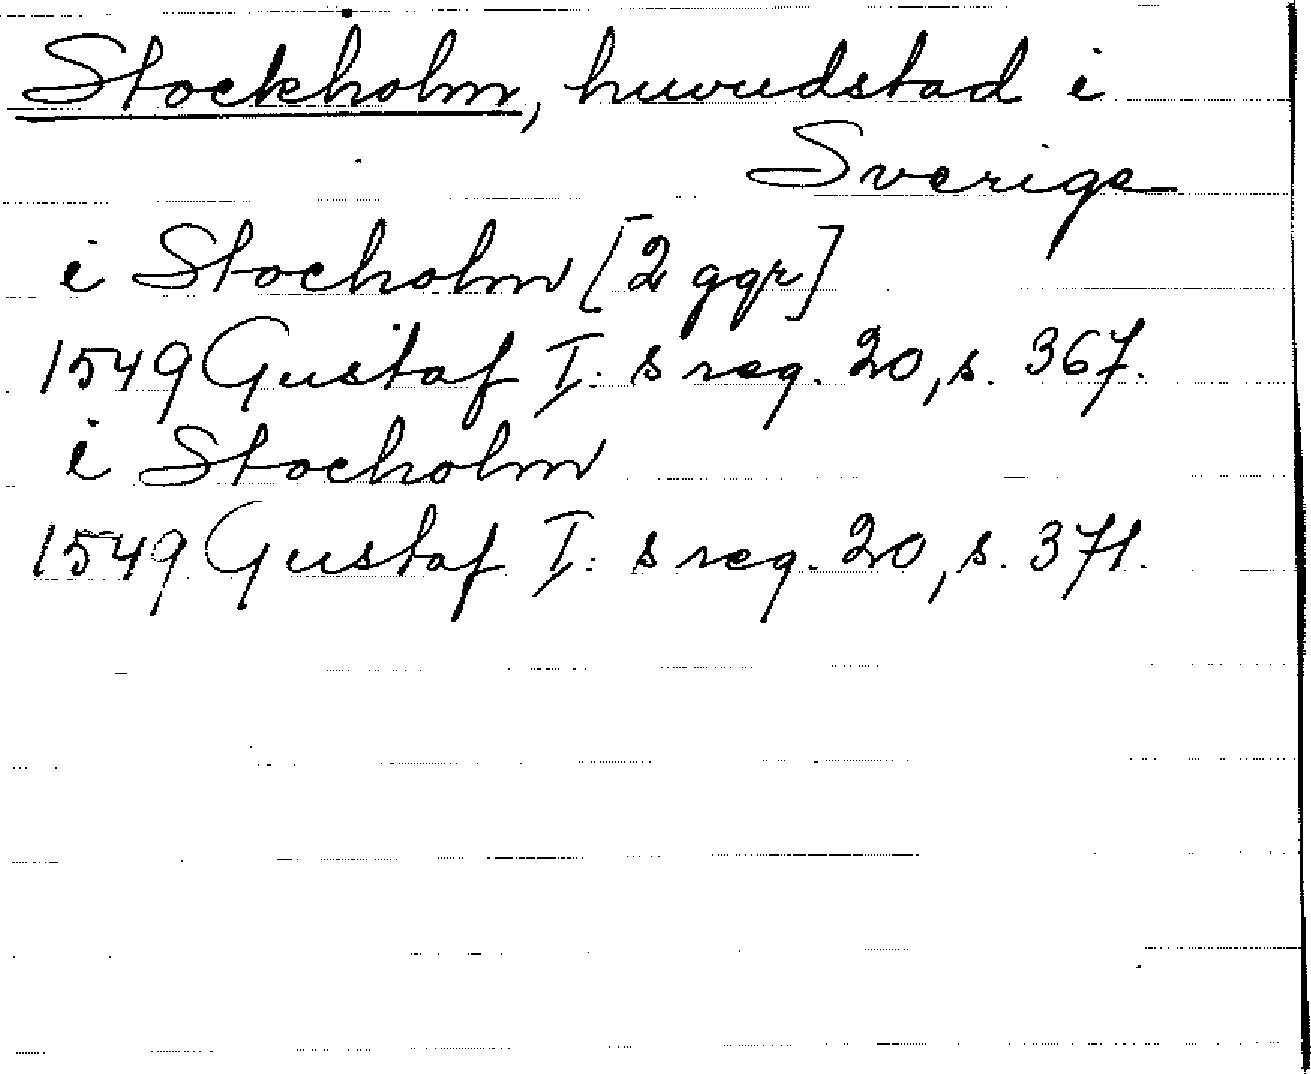 Stockholm, huvudstad i
Sverige
i Stocholm [2 ggr]
1549 Gustaf I:s reg. 20, s. 367.
i Stocholm
1549 Gustaf I:s reg. 20, s. 371.